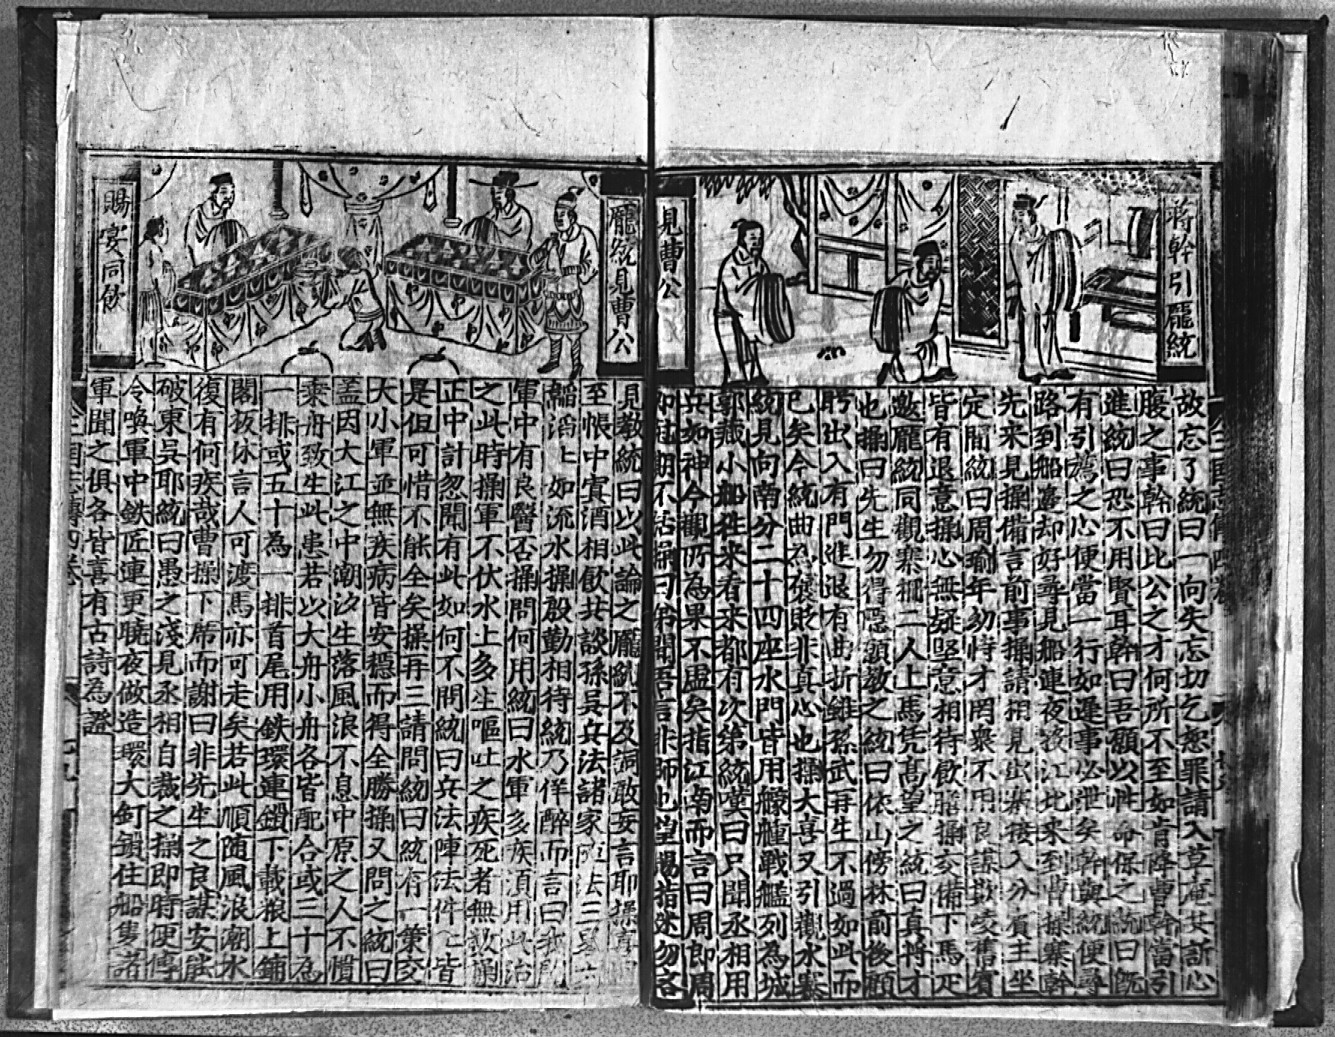 蔣幹引龐統
見曹公
故忘了統曰一向失忘切乞恕罪請入草庵共訴心
腹之事幹曰比公之才何所不至如肯降曹幹當引
進統曰恐不用賢耳幹曰吾願以性命保之統曰既
有引薦之心便當一行如遲事必泄矣幹與統便尋
路到船邊却好尋見船連夜筏江北來到曹操寨幹
先来見操備言前事操請相見出寨接入分賓主坐
定間統曰周瑜年幼恃才罔衆不用良謀欺凌舊賓
皆有退意操心無疑堅意相待飲膳操交備下馬疋
邀龐統同觀寨柵二人上馬凭高望之統曰真將才
也操曰先生勿得隱願教之統曰依山傍林前後顧
盻出入有門進退有曲折雖孫武再生不過如此而
已矣今統曲為褒貶非真心也操大喜又引觀水寨
統見向南分二十四座水門皆用艨艟戰艦列為城
郭藏小船徃来看来都有次第統嘆曰只聞丞相用
兵如神今觀所為果不虛矣指江南而言曰周郎周
賜指迷勿吝
龐統見曹公
賜宴同飲
見教統曰以此論之龐統不及洞敢妄言耶操
至帳中賓酒相飲共談孫吳兵法諸家
滔滔上如流水操殷勤相待統乃佯醉而言曰
軍中有良醫否操問何用統曰水軍多疾須用此治
之此時操軍不伏水上多生嘔吐之疾死者無数
正中計忽聞有此如何不問統曰兵法陣法件件皆
是但可惜不能全矣操再三請問統曰統有一策交
大小軍並無疾病皆安穩而得全勝操又問之統曰
蓋因大江之中潮汐生落風浪不息中原之人不慣
乘舟致生此患若以大舟小舟各皆配合或三十為
一排或五十為一排首尾用鉄環連鎖下載粮上鋪
闊板休言人可渡馬亦可走矣若此順随風浪潮水
復有何疾哉曹操下席而謝曰非先生之良謀安能
破東吳耶統曰愚之淺見丞相自裁之操即時便傳
令喚軍中鉄匠連更曉夜做造環大釘鎖住船隻諸
軍聞之俱各皆喜有古詩為證